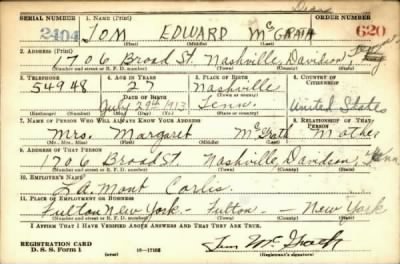 SERIAL NUMBER 1. NAME (Print) ORDER NUMBER
2404 TOM EDWARD McGRATH 620
(First) (Middle) (Last)
2. ADDRESS (Print)
1706 Broad St. Nashville, Davidson,
(Number and street or R. F. D. number) (Town) (County) (State)
3. TELEPHONE 4. AGE IN YEARS 5. PLACE OF BIRTH 6. COUNTRY OF CITIZENSHIP
54948 27 Nashville
DATE OF BIRTH
July 29th 1913 Tenn. United States
(Exchange) (Number) (Mo.) (Day) (Yr.) (State or country)
7. NAME OF PERSON WHO WILL ALWAYS KNOW YOUR ADDRESS 8. RELATIONSHIP OF THAT PERSON
Mrs. Margaret McGrath Mother
(Mr., Mrs., Miss) (First) (Middle) (Last)
9. ADDRESS OF THAT PERSON
1706 Broad St. Nashville, Davidson, Tenn
(Number and street or R. F. D. number) (Town) (County) (State)
10. EMPLOYER'S NAME
La Mont Corlis.
11. PLACE OF EMPLOYMENT OR BUSINESS
Fulton New York - Fulton - New York
(Number and street or R. F. D. number) (Town) (County) (State)
I AFFIRM THAT I HAVE VERIFIED ABOVE ANSWERS AND THAT THEY ARE TRUE.
REGISTRATION CARD
D. S. S. Form 1 (over) 16-17105 Tom McGrath
(Registrant's signature)